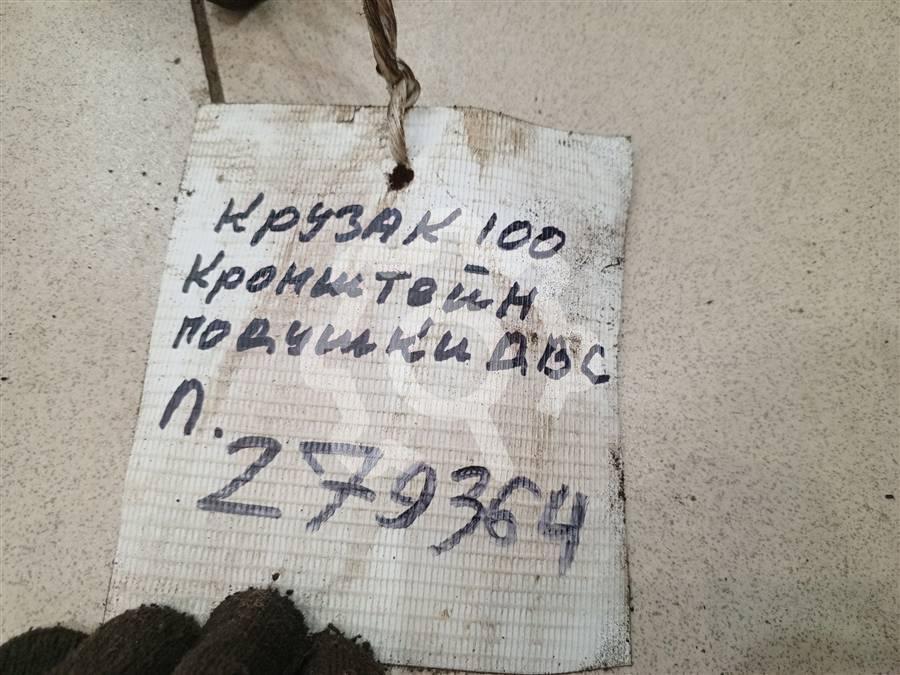 КРУЗАК 100
Кронштейн
подушки ДВС
Л.
279364